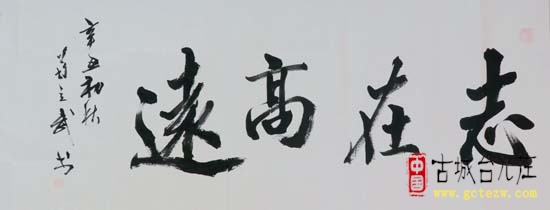 志在高遠
辛丑初秋
中国
古城台儿庄
www.gctezw.com